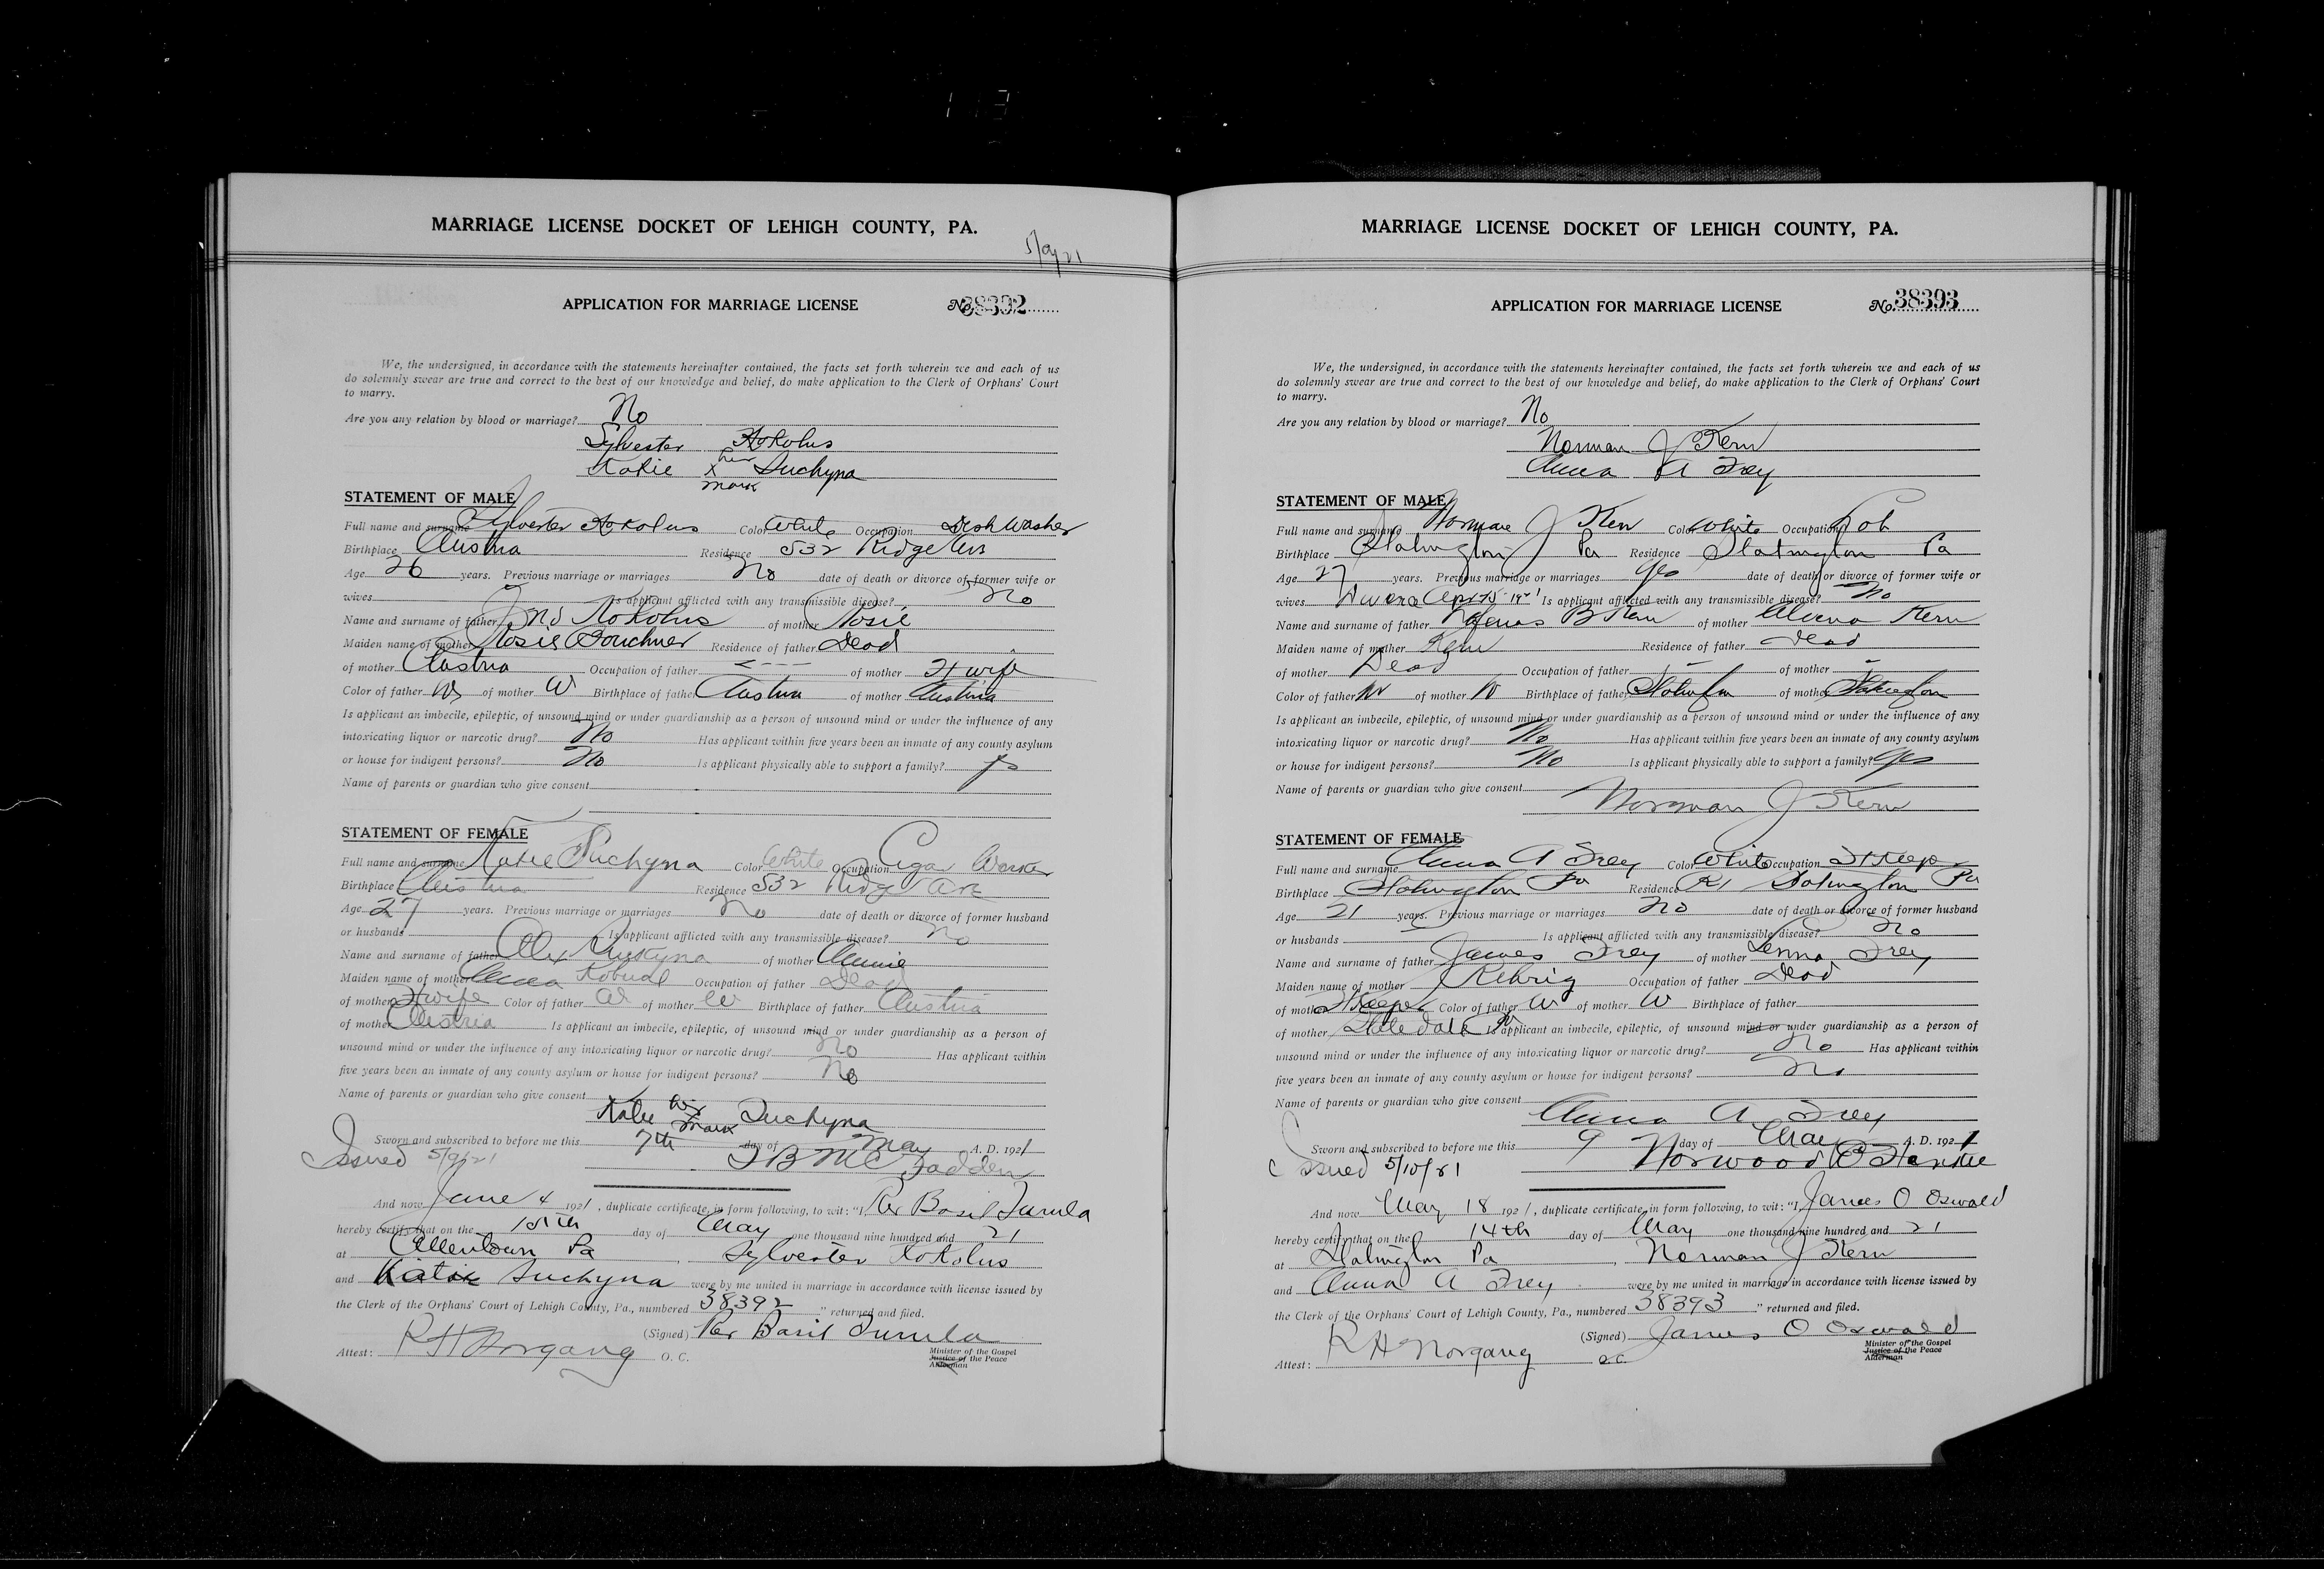 113
MARRIAGE LICENSE DOCKET OF LEHIGH COUNTY, PA.
5/9/21
APPLICATION FOR MARRIAGE LICENSE No. 38392
We, the undersigned, in accordance with the statements hereinafter contained, the facts set forth wherein we and each of us
do solemnly swear are true and correct to the best of our knowledge and belief, do make application to the Clerk of Orphans' Court
to marry.
Are you any relation by blood or marriage? No
Sylvester Kokolus
Katie x her mark Suchyna
STATEMENT OF MALE
Full name and surname Sylvester Kokolus Color White Occupation Dish Washer
Birthplace Austria Residence 532 Ridge Ave
Age 26 years. Previous marriage or marriages No date of death or divorce of former wife or
wives Is applicant afflicted with any transmissible disease? No
Name and surname of father Kokolus of mother Rosie
Maiden name of mother Rosie Residence of father Dead
of mother Austria Occupation of father ---- of mother H wife
Color of father W of mother W Birthplace of father Austria of mother Austria
Is applicant an imbecile, epileptic, of unsound mind or under guardianship as a person of unsound mind or under the influence of any
intoxicating liquor or narcotic drug? No Has applicant within five years been an inmate of any county asylum
or house for indigent persons? No Is applicant physically able to support a family?
Name of parents or guardian who give consent
STATEMENT OF FEMALE
Full name and surname Katie Suchyna Color White Occupation Cigar Worker
Birthplace Austria Residence 532 Ridge Ave
Age 27 years. Previous marriage or marriages No date of death or divorce of former husband
or husbands Is applicant afflicted with any transmissible disease? No
Name and surname of father Alex Suchyna of mother Annie
Maiden name of mother Anna Occupation of father Dead
of mother H wife Color of father W of mother W Birthplace of father Austria
of mother Austria Is applicant an imbecile, epileptic, of unsound mind or under guardianship as a person of
unsound mind or under the influence of any intoxicating liquor or narcotic drug? No Has applicant within
five years been an inmate of any county asylum or house for indigent persons? No
Name of parents or guardian who give consent
Katie her mark Suchyna
Sworn and subscribed to before me this 7th day of May A. D. 1921
Issued 5/9/21 McFadden
And now June 4 1921, duplicate certificate, in form following, to wit: "I, Rev Basil Turula
hereby certify that on the 15th day of May one thousand nine hundred and 21
at Allentown Pa , Sylvester Kokolus
and Katie Suchyna were by me united in marriage in accordance with license issued by
the Clerk of the Orphans' Court of Lehigh County, Pa., numbered 38392 " returned and filed.
(Signed) Rev Basil Turula
Attest: R H Norgang O. C.
Minister of the Gospel
Justice of the Peace
Alderman
MARRIAGE LICENSE DOCKET OF LEHIGH COUNTY, PA.
APPLICATION FOR MARRIAGE LICENSE No. 38393
We, the undersigned, in accordance with the statements hereinafter contained, the facts set forth wherein we and each of us
do solemnly swear are true and correct to the best of our knowledge and belief, do make application to the Clerk of Orphans' Court
to marry.
Are you any relation by blood or marriage? No
Norman J Kern
Anna A Frey
STATEMENT OF MALE
Full name and surname Norman J Kern Color White Occupation Lab
Birthplace Slatington Pa Residence Slatington Pa
Age 27 years. Previous marriage or marriages Yes date of death or divorce of former wife or
wives Divorce Apr 1921 Is applicant afflicted with any transmissible disease? No
Name and surname of father B Kern of mother Alvena Kern
Maiden name of mother Kern Residence of father Dead
of mother Dead Occupation of father — of mother -
Color of father W of mother W Birthplace of father Slatington of mother Slatington
Is applicant an imbecile, epileptic, of unsound mind or under guardianship as a person of unsound mind or under the influence of any
intoxicating liquor or narcotic drug? No Has applicant within five years been an inmate of any county asylum
or house for indigent persons? No Is applicant physically able to support a family? Yes
Name of parents or guardian who give consent
Norman J Kern
STATEMENT OF FEMALE
Full name and surname Anna A Frey Color White Occupation H Keep
Birthplace Slatington Pa Residence R1 Slatington Pa
Age 21 years. Previous marriage or marriages No date of death or divorce of former husband
or husbands Is applicant afflicted with any transmissible disease? No
Name and surname of father James Frey of mother Lenna Frey
Maiden name of mother Rehrig Occupation of father Dead
of mother H Keeper Color of father W of mother W Birthplace of father
of mother Slatedale Pa Is applicant an imbecile, epileptic, of unsound mind or under guardianship as a person of
unsound mind or under the influence of any intoxicating liquor or narcotic drug? No Has applicant within
five years been an inmate of any county asylum or house for indigent persons? No
Name of parents or guardian who give consent
Anna A. Frey
Sworn and subscribed to before me this 9 day of May A. D. 1921
Issued 5/10/21 Norwood
And now May 18 1921, duplicate certificate, in form following, to wit: "I, James O Oswald
hereby certify that on the 14th day of May one thousand nine hundred and 21
at Slatington Pa , Norman J Kern
and Anna A Frey were by me united in marriage in accordance with license issued by
the Clerk of the Orphans' Court of Lehigh County, Pa., numbered 38393 " returned and filed.
(Signed) James O Oswald
Attest: R H Norgang O.C.
Minister of the Gospel
Justice of the Peace
Alderman